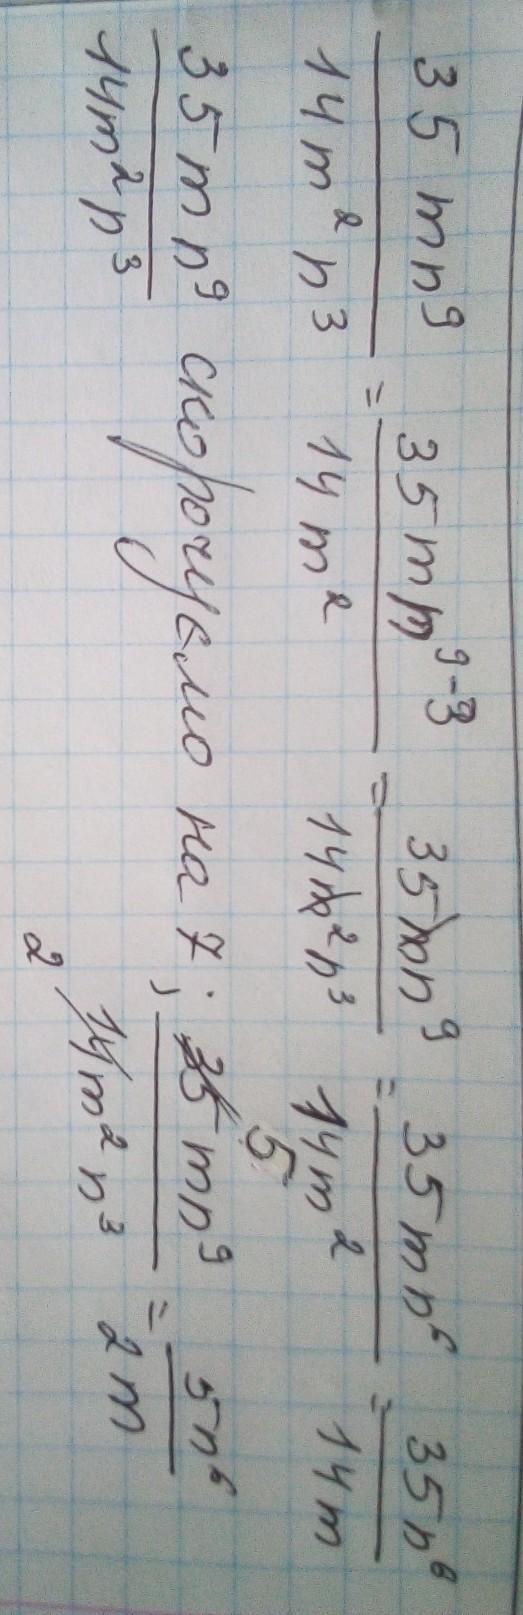 35mn⁹/14m²n³ = 35mn⁹⁻³/14m² = 35mn⁹/14m²n³ = 35mn⁶/14m² = 35n⁶/14m
35mn⁹/14m²n³ скорочуємо на 7; 35 5 mn⁹/14 2 m²n³ = 5n⁶/2m